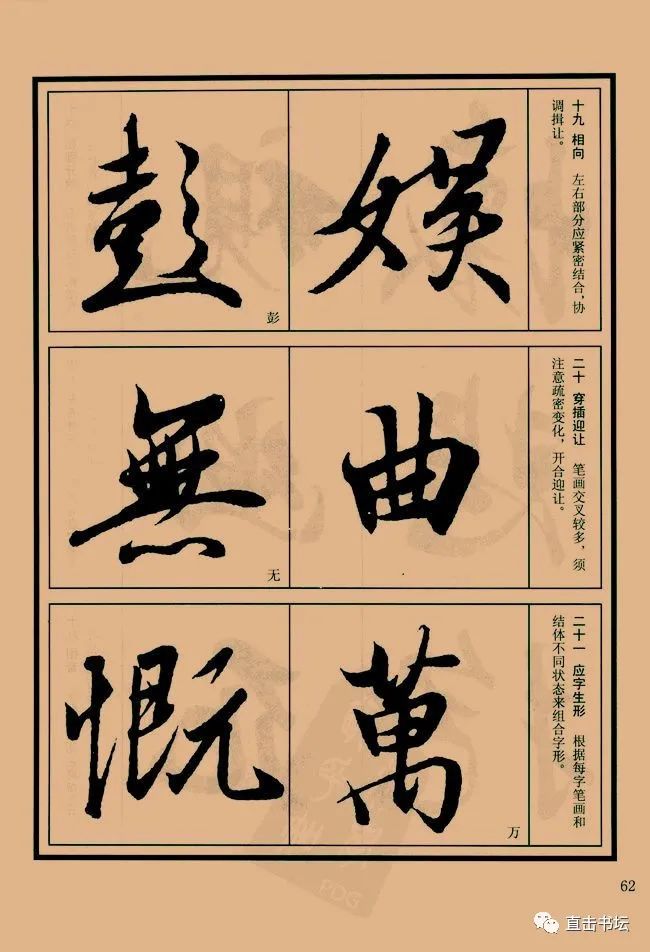 十九 相向 左右部分应紧密结合,协
调揖让。
娱
彭
彭
二十 穿插迎让 笔画交叉较多,须
注意疏密变化,开合迎让。
曲
無
无
二十一 应字生形 根据每字笔画和
结体不同状态来组合字形。
萬
万
慨
PDG
62
直击书坛